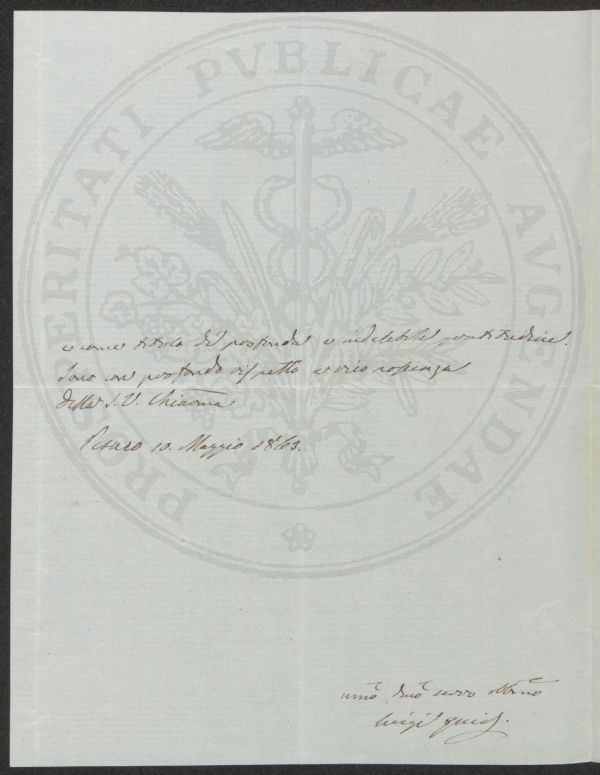 PROSPERITATI PVBLICAE AVGENDAE
e come titolo di profonda e indelebile gratitudine.
Sono con profondo rispetto e
Della S. V. Chiarma
Pesaro 10. Maggio 1863.
umo devo servo obbmo
Luigi